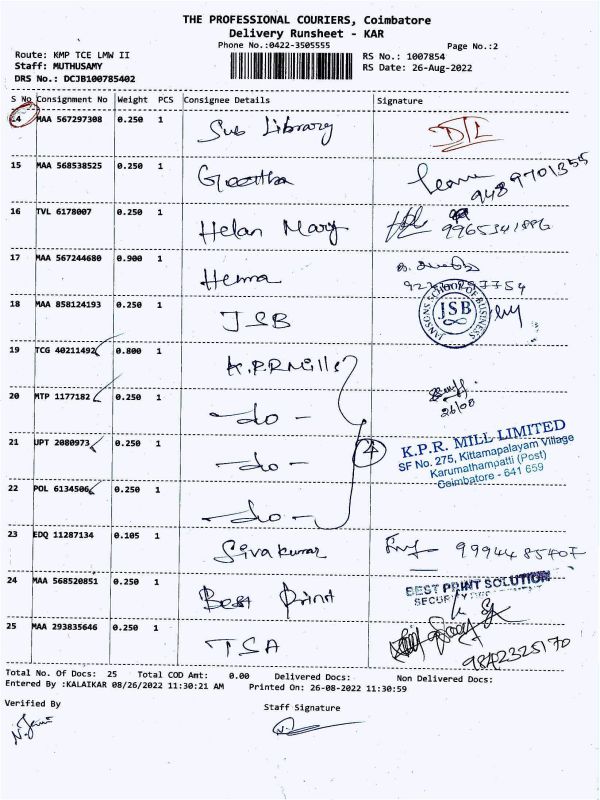 THE PROFESSIONAL COURIERS, Coimbatore
Delivery Runsheet - KAR
Phone No.:0422-3505555
Page No.:2
Route: KMP TCE LMW II
RS No.: 1007854
Staff: MUTHUSAMY
RS Date: 26-Aug-2022
DRS No.: DCJB100785402
S No Consignment No Weight PCS Consignee Details Signature
14 MAA 567297308 0.250 1 Sub Library
15 MAA 568538525 0.250 1 Geetha 9489701355
16 TVL 6178007 0.250 1 Helan Mary 9965341896
17 MAA 567244680 0.900 1 Hema
18 MAA 858124193 0.250 1 JSB
JANSONS SCHOOL OF BUSINESS
JSB
19 TCG 40211492 0.800 1 K.P.R Mills
20 MTP 1177182 0.250 1 -do-
26/08
21 UPT 2080973 0.250 1 -do-
4
K.P.R. MILL LIMITED
SF No. 275, Kittamapalayam Village
Karumathampatti (Post)
Coimbatore - 641 659
22 POL 6134506 0.250 1 -do-
23 EDQ 11287134 0.105 1 Siva kumar 9994485407
24 MAA 568520851 0.250 1 Best Print
BEST PRINT SOLUTION
25 MAA 293835646 0.250 1 TSA
9842325170
Total No. Of Docs: 25 Total COD Amt: 0.00 Delivered Docs: Non Delivered Docs:
Entered By :KALAIKAR 08/26/2022 11:30:21 AM Printed On: 26-08-2022 11:30:59
Verified By
Staff Signature